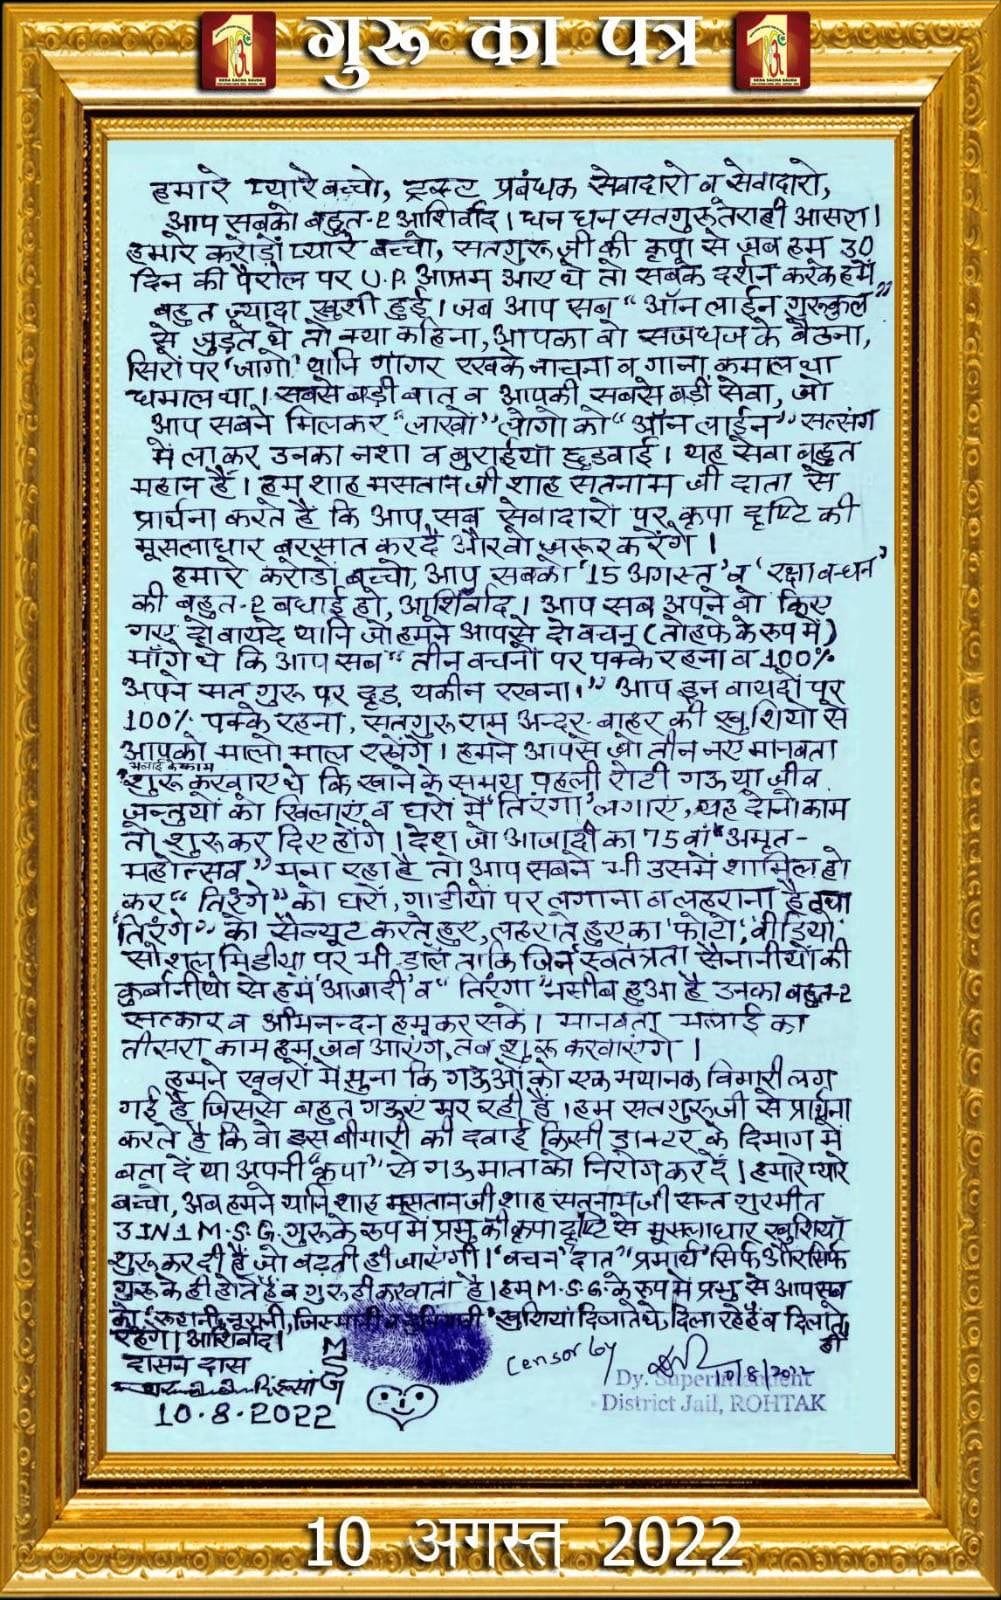 गुरु का पत्र
हमारे प्यारे बच्चो, ट्रस्ट प्रबंधक सेवादारो व सेवादारो,
आप सबको बहुत-2 आशिर्वाद। धन धन सतगुरु तेरा ही आसरा।
हमारे करोड़ों प्यारे बच्चो, सतगुरु जी की कृपा से जब हम 30
दिन की पैरोल पर U.P. आश्रम आए थे तो सबके दर्शन करके हमें
बहुत ज्यादा खुशी हुई। जब आप सब "ऑन लाईन गुरुकुल"
से जुड़ते थे तो क्या कहिना, आपका वो सजधज के बैठना,
सिरों पर 'जागो' यानि गागर रखके नाचना व गाना, कमाल था
धमाल था। सबसे बड़ी बात व आपकी सबसे बड़ी सेवा, जो
आप सबने मिलकर "लाखों" लोगो को "ऑन लाईन" सत्संग
में लाकर उनका नशा व बुराईयाँ छुडवाई। यह सेवा बहुत
महान है। हम शाह मसतान जी शाह सतनाम जी दाता से
प्रार्थना करते है कि आप सब सेवादारो पर कृपा दृष्टि की
मूसलाधार बरसात करदें और वो जरूर करेंगे।
हमारे करोडों बच्चो, आप सबको '15 अगस्त' व 'रक्षाबन्धन'
की बहुत-2 बधाई हो, आशिर्वाद। आप सब अपने वो किए
गए दो वायदे यानि जो हमने आपसे दो वचन (तोहफे के रूप में)
माँगे थे कि आप सब "तीन वचनों पर पक्के रहना व 100%
अपने सतगुरु पर दृड़ यकीन रखना।" आप इन वायदों पर
100% पक्के रहना, सतगुरु राम अन्दर-बाहर की खुशियों से
आपको मालो माल रखेंगे। हमने आपसे जो तीन नए मानवता
भलाई के काम
शुरू करवाए थे कि खाने के समय पहली रोटी गऊ या जीव
जन्तुयों को खिलाएं व घरों में 'तिरंगा' लगाएं, यह दोनो काम
तो शुरू कर दिए होंगे। देश जो आजादी का 75 वां "अमृत-
महोत्सव" मना रहा है तो आप सबने भी उसमें शामिल हो
कर "तिरंगे" को घरों, गाडीयों पर लगाना व लहराना है तथा
'तिरंगे" को सैल्यूट करते हुए, लहराते हुए का 'फोटो', 'वीडियो'
सोशल मिडीया पर भी डालें ताकि जिन स्वतंत्रता सैनानीयों की
कुर्बानीयों से हमें 'आजादी' व "तिरंगा" नसीब हुआ है उनका बहुत-2
सत्कार व अभिनन्दन हम कर सकें। मानवता भलाई का
तीसरा काम हम जब आएंगे, तब शुरू करवाएंगे।
हमने खबरों में सुना कि गऊओं को एक भयानक बिमारी लग
गई है जिससे बहुत गऊएं मर रही हैं। हम सतगुरु जी से प्रार्थना
करते है कि वो इस बीमारी की दवाई किसी डाक्टर के दिमाग में
बता दें या अपनी "कृपा" से गऊ माता को निरोग कर दें। हमारे प्यारे
बच्चो, अब हमने यानि शाह मसतान जी शाह सतनाम जी सन्त गुरमीत
3 IN 1 M.S.G. गुरु के रूप में प्रभु की कृपा दृष्टि से मूसलाधार खुशियाँ
शुरू कर दी हैं जो बढ़ती ही जाएंगी। 'वचन' दात" 'प्रमार्थ' सिर्फ और सिर्फ
गुरु के ही होते हैं व गुरु ही करवाता है। हम M.S.G. के रूप में प्रभु से आप सब
को 'रूहानी, नूरानी, खुशियां दिलाते थे, दिला रहे हैं व दिलाते ही
रहेंगे। आशिर्वाद।
दासन दास
MSG
10.8.2022
Censor by
10/8/2022
Dy. Superintendent
District Jail, ROHTAK
10 अगस्त 2022